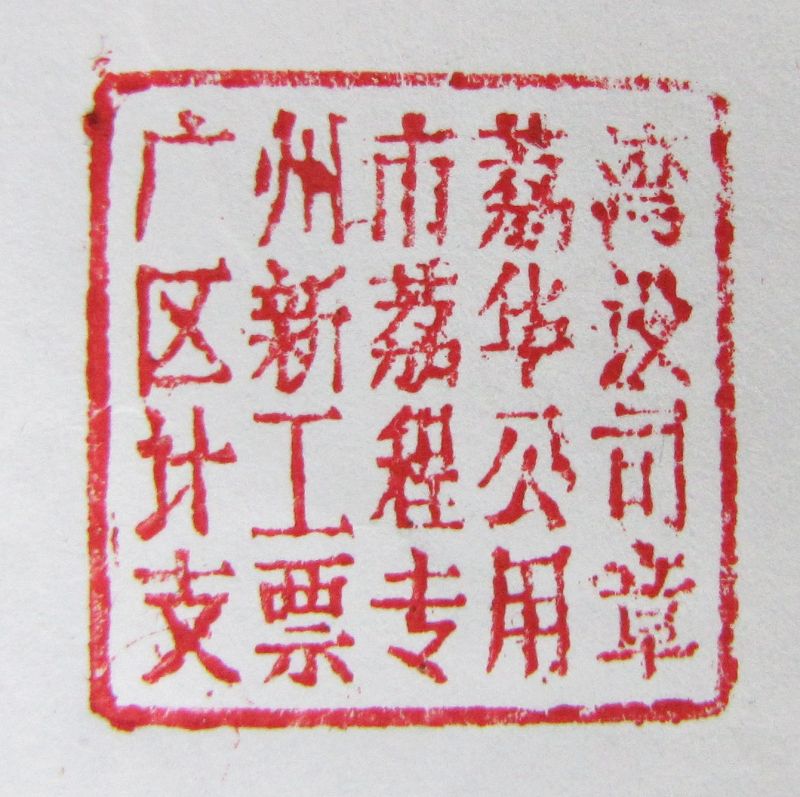 广州市荔湾
区新荔华设
计工程公司
支票专用章